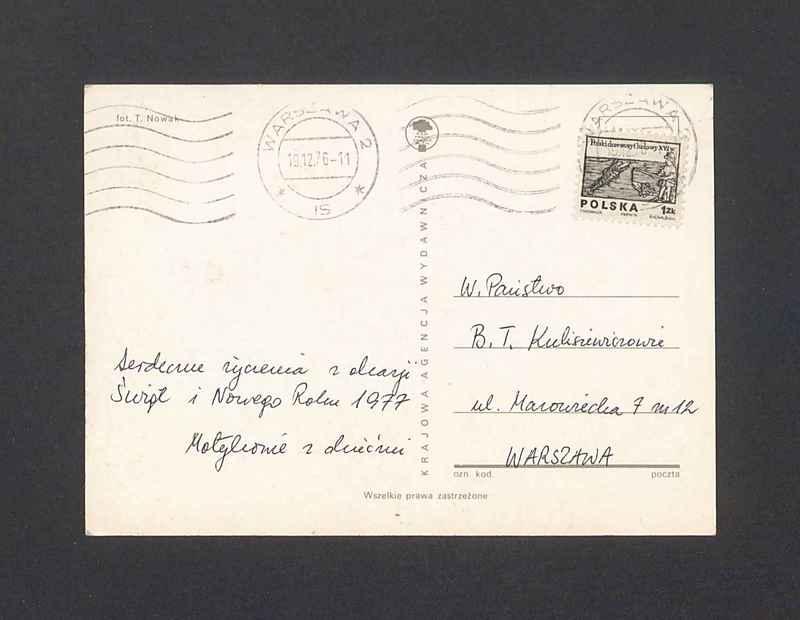 fot. T. Nowak
WARSZAWA 2
18.12.76-11
15
WARSZAWA
Polski drzeworyt ludowy XVI w.
POLSKA 1zł
KRAJOWA AGENCJA WYDAWNICZA
Serdeczne życzenia z okazji
Świąt i Nowego Roku 1977
Motylkowie z dziećmi
W. Państwo
B. T. Kuliszewiczowie
ul. Mazowiecka 7 m 12
WARSZAWA
ozn. kod. poczta
Wszelkie prawa zastrzeżone